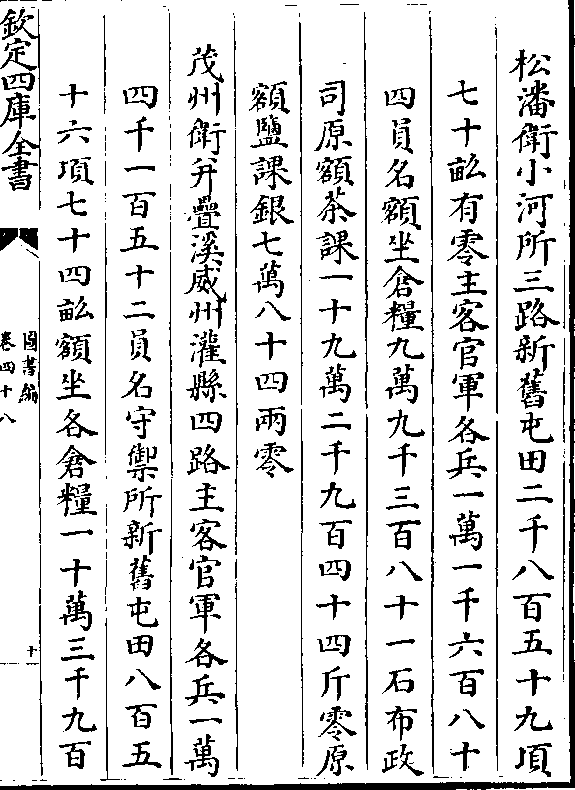 松潘衛小河所三路新舊屯田二千八百五十九頃
七十畝有零主客官軍各兵一萬一千六百八十
四員名額坐倉糧九萬九千三百八十一石布政
司原額茶課一十九萬二千九百四十四斤零原
額鹽課銀七萬八十四兩零
茂州衛并疊溪威州灌縣四路主客官軍各兵一萬
四千一百五十二員名守禦所新舊屯田八百五
十六頃七十四畝額坐各倉糧一十萬三千九百
欽定四庫全書
圖書編
卷四十八
十